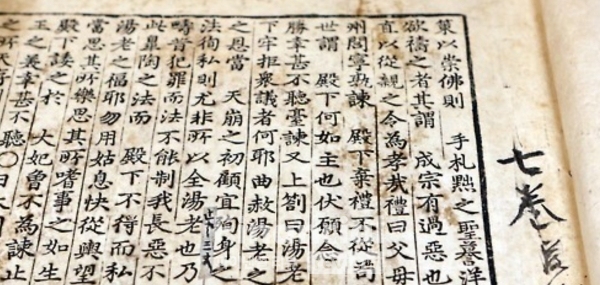 七卷
策以崇佛則 手札黜之聖謩洋
欲禱之者其謂 成宗有過惡也
直以從親之令為孝哉禮曰父母
州閭寧孰諫 殿下棄禮不從苟
世謂 殿下何如主也伏願念
勝幸甚不聽臺諫又上劄曰湯老
下牢拒衆議者何耶曲赦湯老之
之恩當 天崩之初顧宜殉身之
法徇私則尤非所以全湯老也乃
疇昔犯罪而法不能制我長惡不
此臯陶之法而 殿下不得而私
湯老之福耶勿用姑息快從輿望
當思其所樂思其所嗜事之如生
殿下諉之於 大妃曾不為諫止
玉之美幸甚不聽○